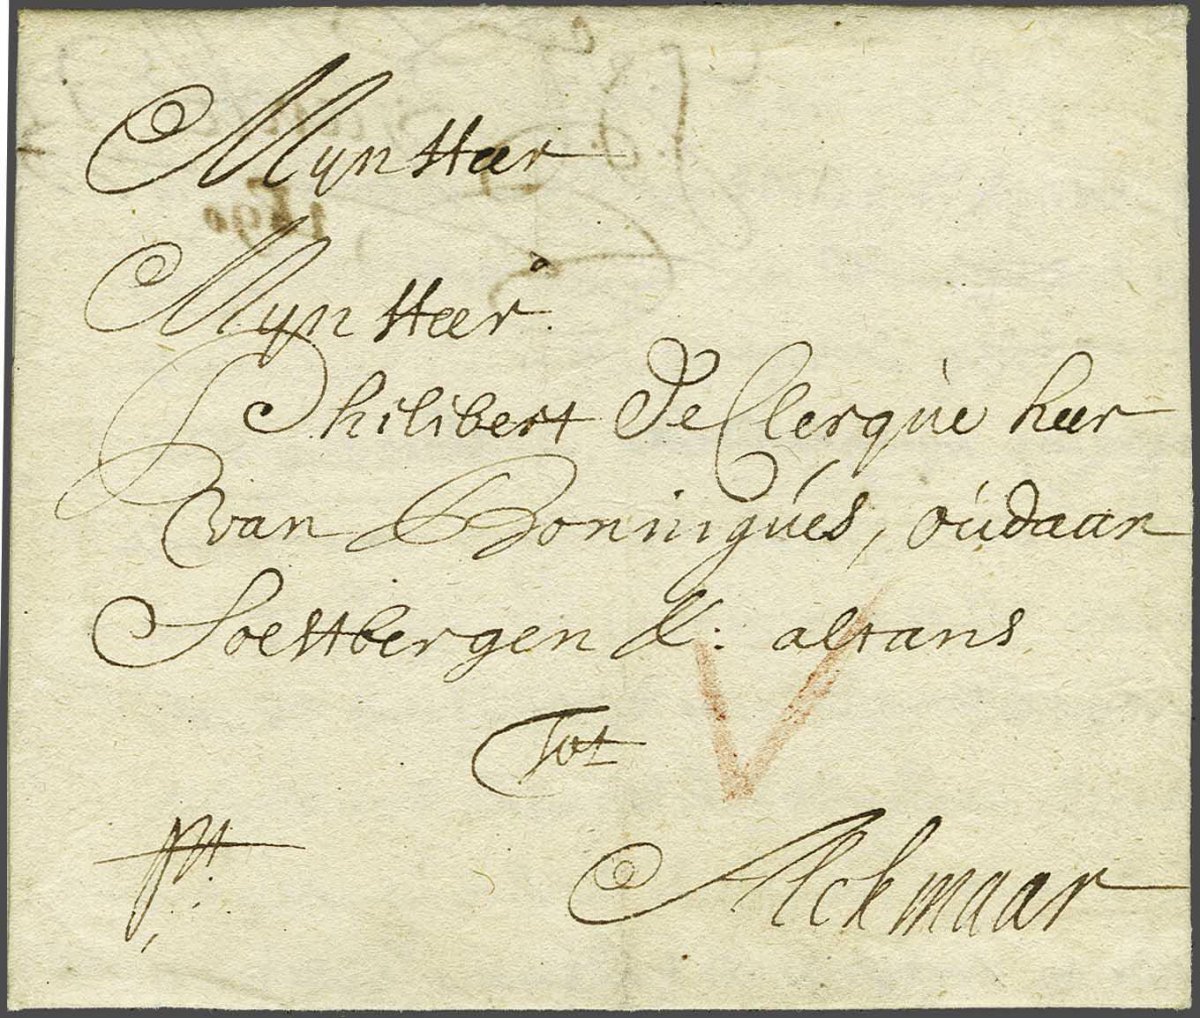 Myn Heer
Myn Heer
Philibert De Clerque heer
van Boningues, oudaan
Soestbergen &: altans
Tot
Alckmaar